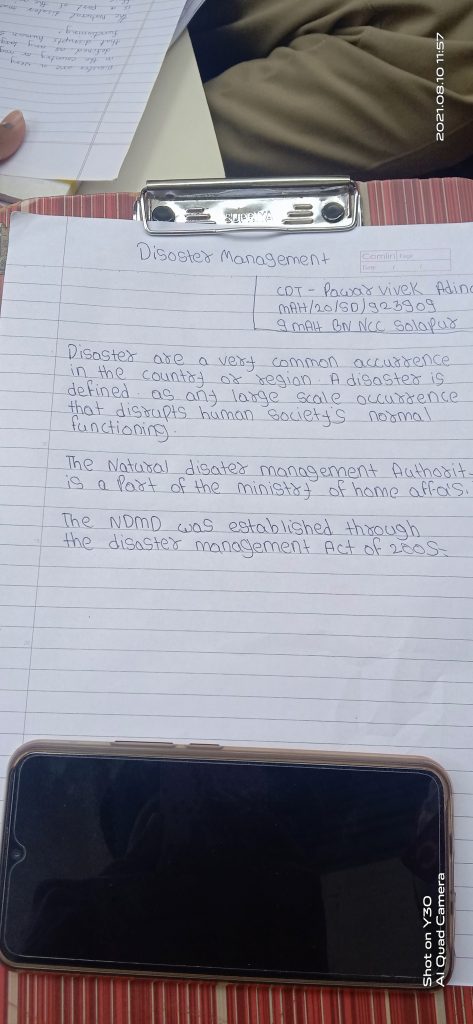 2021.08.10 11:57
SUPRIYA
Disaster Management
Camlin Page
Date / /
CDT - Pawar vivek Adina
MAH/20/SD/923909
9 MAH BN NCC Solapur
Disaster are a very common accurrence
in the country or region. A disaster is
defined as any large scale occurrence
that disrupts human Society's normal
functioning.
The Natural disater management Authorit
is a Part of the ministry of home affais.
The NDMD was established through
the disaster management Act of 2005.
Shot on Y30
AI Quad Camera